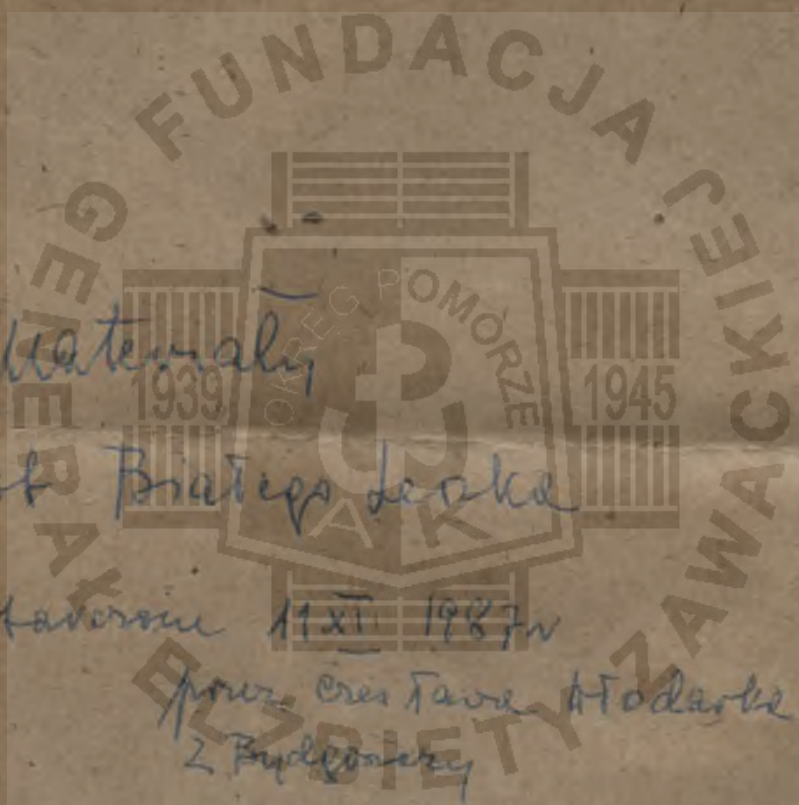 FUNDACJA GENERAŁ ELŻBIETY ZAWACKIEJ
OKRĘG POMORZE
1939
1945
AK
Materiały
Białego
11 XI 1987 r
przez Czesława Włodarka
z Bydgoszczy